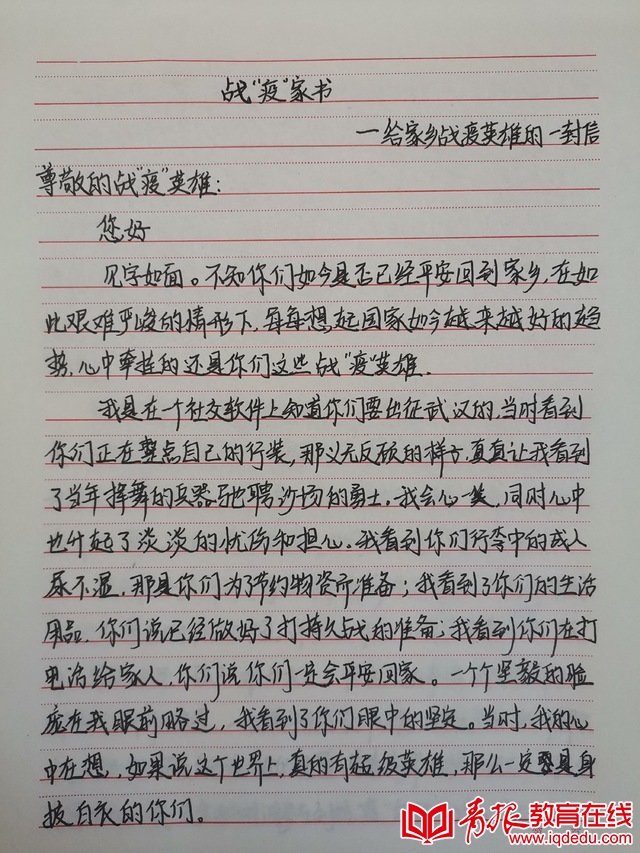 战“疫”家书
一给家乡战疫英雄的一封信
尊敬的战“疫”英雄：
您好
见字如面。不知你们如今是否已经平安回到家乡，在如
此艰难严峻的情形下，每每想起国家如今越来越好的趋
势，心中牵挂的还是你们这些战“疫”英雄．
我是在一个社交软件上知道你们要出征武汉的，当时看到
你们正在整点自己的行装，那义无反顾的样子，真真让我看到
了当年挥舞的兵器与驰骋沙场的勇士。我会心一笑，同时心中
也升起了淡淡的忧伤和担心。我看到你们行李中的成人
尿不湿，那是你们为了节约物资所准备；我看到了你们的生活
用品，你们说已经做好了打持久战的准备；我看到你们在打
电话给家人，你们说你们一定会平安回家。一个个坚毅的脸
庞在我眼前略过，我看到了你们眼中的坚定。当时，我的心
中在想，如果说这个世界上，真的有超级英雄，那么一定是身
披白衣的你们。
青报教育在线
www.iqdedu.com